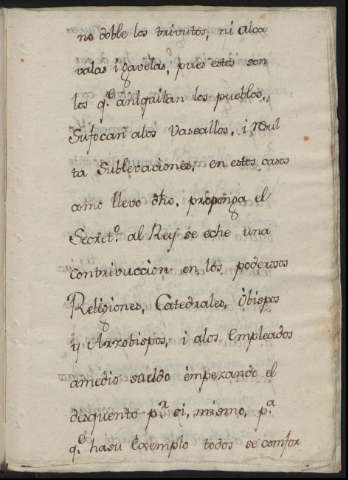 no doble los trivutos, ni alca
valas i gavelas, pues estos son
los q.e anilquilan los pueblos,
Sufocan alos Vasallos, i resul
ta Sublevaciones, en estos casos
como llevo dho, proponga el
Secret.o al Rey se eche una
contrivuccion en los poderosos
Religiones, Catedrales, Obispos
y Arzobispos, i alos Empleados
amedio sueldo empezando el
desquento p.r si, mismo, p.a
q.e hasu Exemplo todos se confor